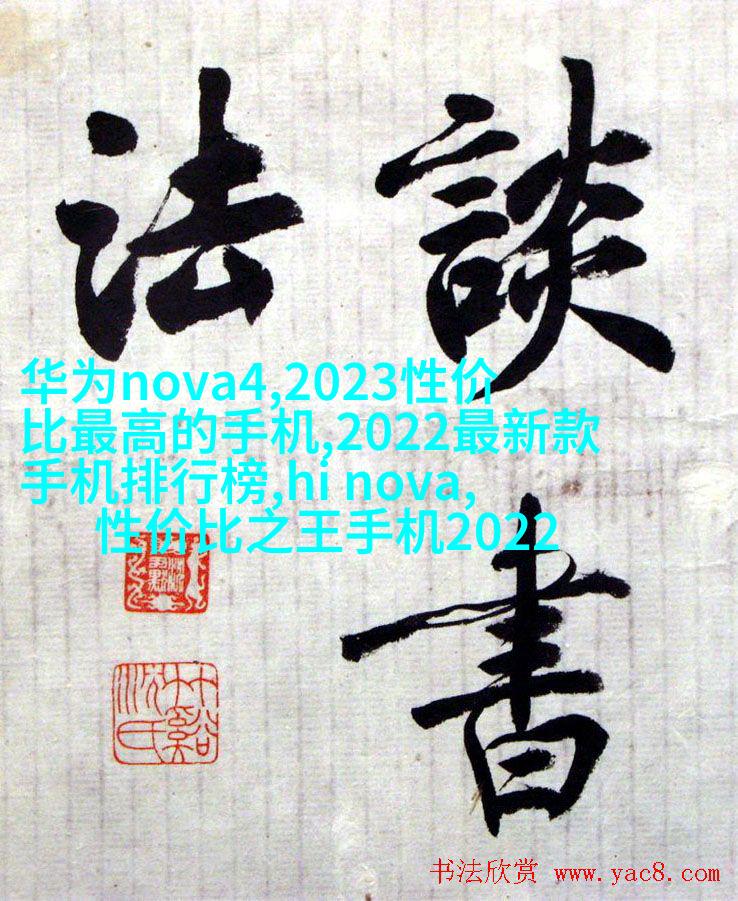 談書
法
华为nova4,2023性价
比最高的手机,2022最新款
手机排行榜,hi nova,
性价比之王手机2022
书法欣赏 www.yac8.com